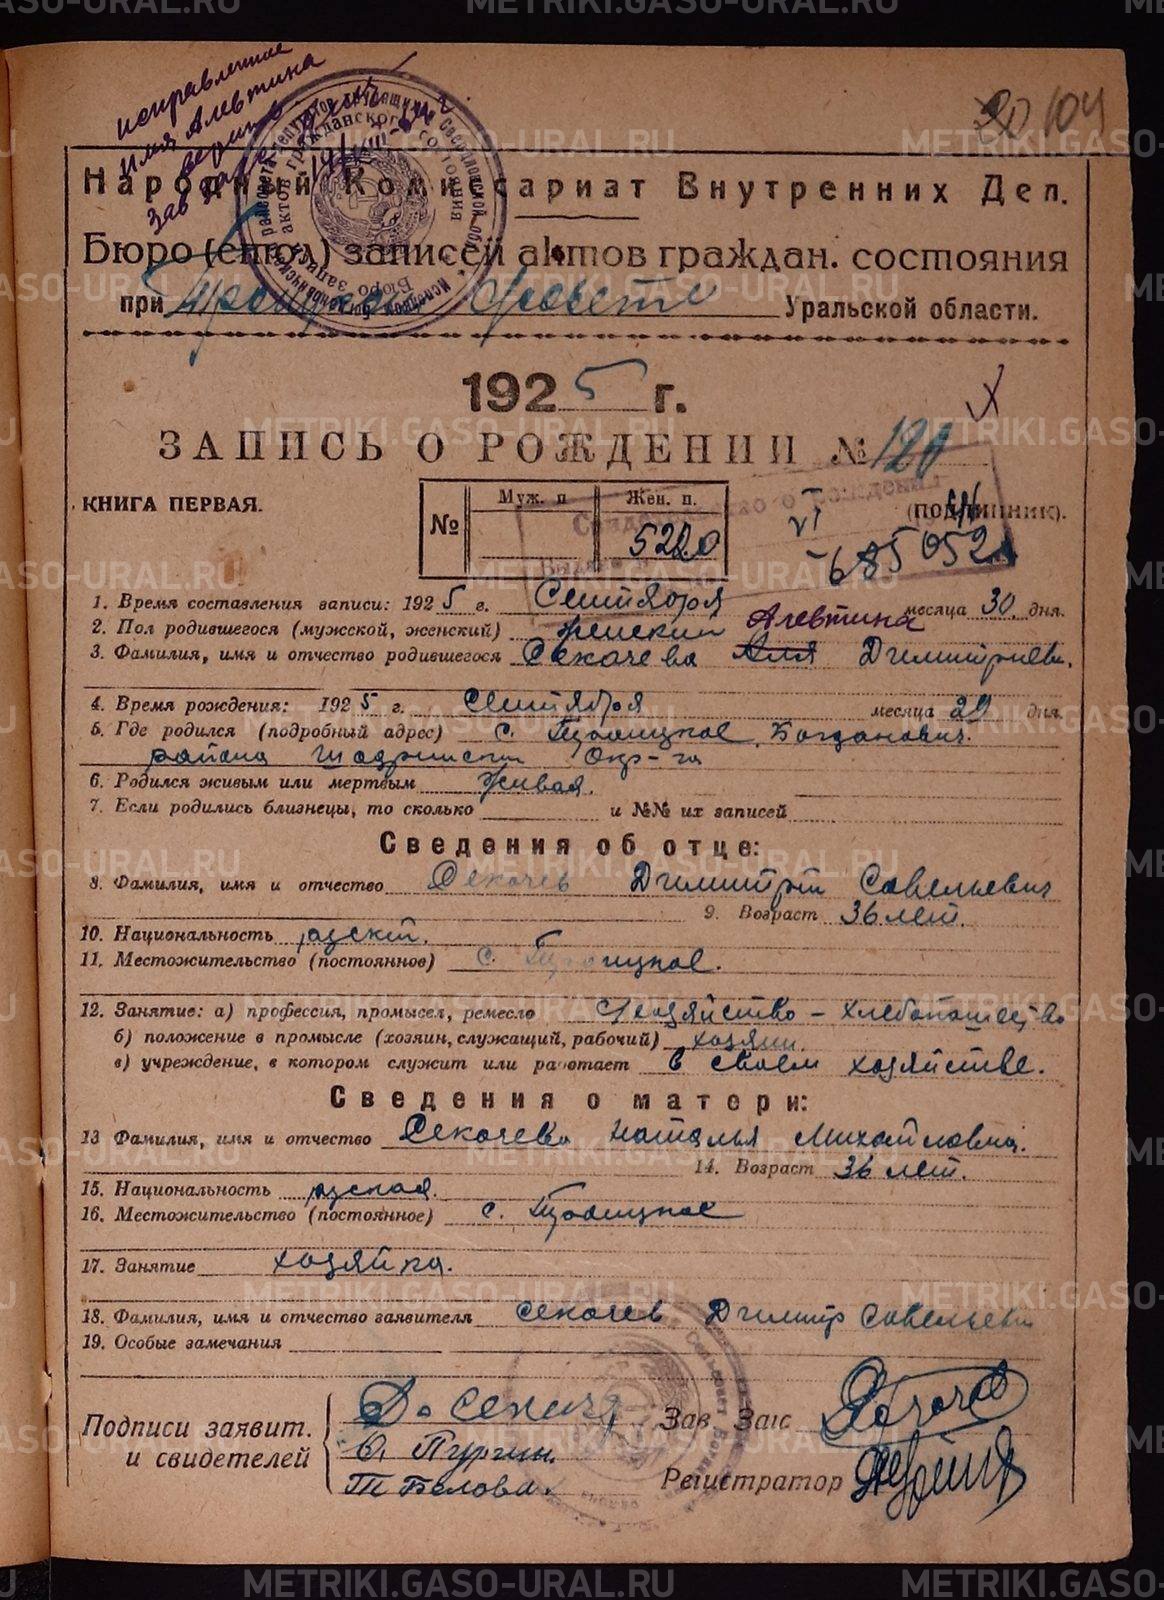 METRIKI.GASO-URAL.RU
исправленное
имя Алевтина
верить
Зав
104
Народный Комиссариат Внутренних Дел.
Бюро (стол) записей актов граждан. состояния
при Троицком с/совете Уральской области.
1925 г.
ЗАПИСЬ О РОЖДЕНИИ № 120
КНИГА ПЕРВАЯ. (подлинник).
Муж. п. Жен. п.
№ 52
VI 685052
1. Время составления записи: 1925 г. Сентября месяца 30 дня.
2. Пол родившегося (мужской, женский) женский Алевтина
3. Фамилия, имя и отчество родившегося Секачева Аля Димитриевн.
4. Время рождения: 1925 г. Сентября месяца 29 дня.
5. Где родился (подробный адрес) с. Троицкое, Богданович.
района Шадринского Окр-га
6. Родился живым или мертвым живая.
7. Если родились близнецы, то сколько и №№ их записей
Сведения об отце:
8. Фамилия, имя и отчество Секачев Димитрий Савельевич
9. Возраст 36 лет.
10. Национальность русский.
11. Местожительство (постоянное) с. Троицкое.
12. Занятие: а) профессия, промысел, ремесло С/хозяйство – хлебопашество
б) положение в промысле (хозяин, служащий, рабочий) хозяин.
в) учреждение, в котором служит или работает в своем хозяйстве.
Сведения о матери:
13 Фамилия, имя и отчество Секачева Наталья Михайловна.
14. Возраст 36 лет.
15. Национальность русская.
16. Местожительство (постоянное) с. Троицкое
17. Занятие хозяйка.
18. Фамилия, имя и отчество заявителя Секачев Димитр Савельеви
19. Особые замечания
Подписи заявит. и свидетелей
Д. Секаче
Пургин.
Т Белова.
Зав. Загс
Регистратор